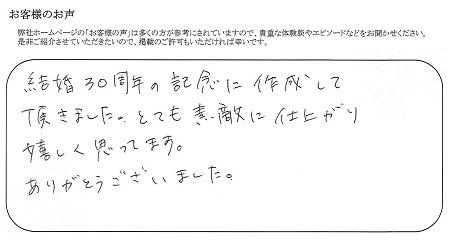 お客様のお声
弊社ホームページの「お客様の声」は多くの方が参考にされていますので、貴重な体験談やエピソードなどをお聞かせください。
是非ご紹介させていただきたいので、掲載のご許可もいただければ幸いです。
結婚30周年の記念に作成して
頂きました。とても素敵に仕上がり
嬉しく思ってます。
ありがとうございました。